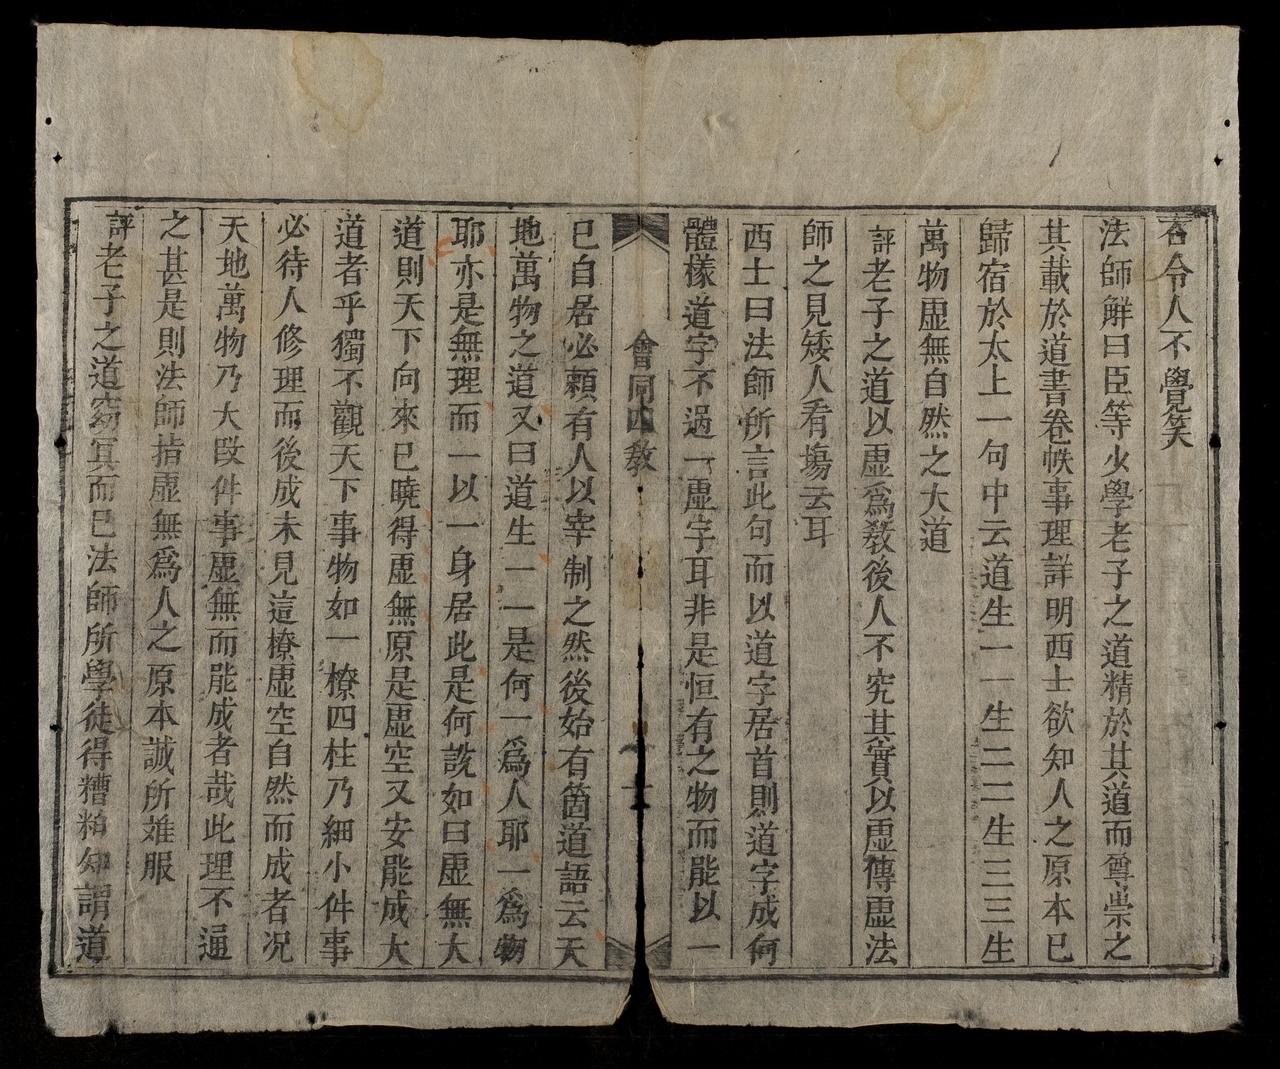 者令人不覺笑
法師解曰臣等少學老子之道精於其道而尊崇之
其載於道書卷帙事理詳明西士欲知人之原本已
歸宿於太上一句中云道生一一生二二生三三生
萬物虛無自然之大道
評老子之道以虛爲教後人不究其實以虛傳虛法
師之見矮人看塲云耳
西士曰法師所言此句而以道字居首則道字成何
體樣道字不過一虛字耳非是恒有之物而能以一
會同四教
十
已自居必賴有人以宰制之然後始有箇道語云天
地萬物之道又曰道生一一是何一爲人耶一爲物
耶亦是無理而一以一身居此是何說如曰虛無大
道則天下向來已曉得虛無原是虛空又安能成大
道者乎獨不觀天下事物如一橑四柱乃細小件事
必待人修理而後成未見這橑虛空自然而成者況
天地萬物乃大段件事虛無而能成者哉此理不通
之甚是則法師指虛無爲人之原本誠所难服
評老子之道窈冥而已法師所學徒得糟粕卸謂道